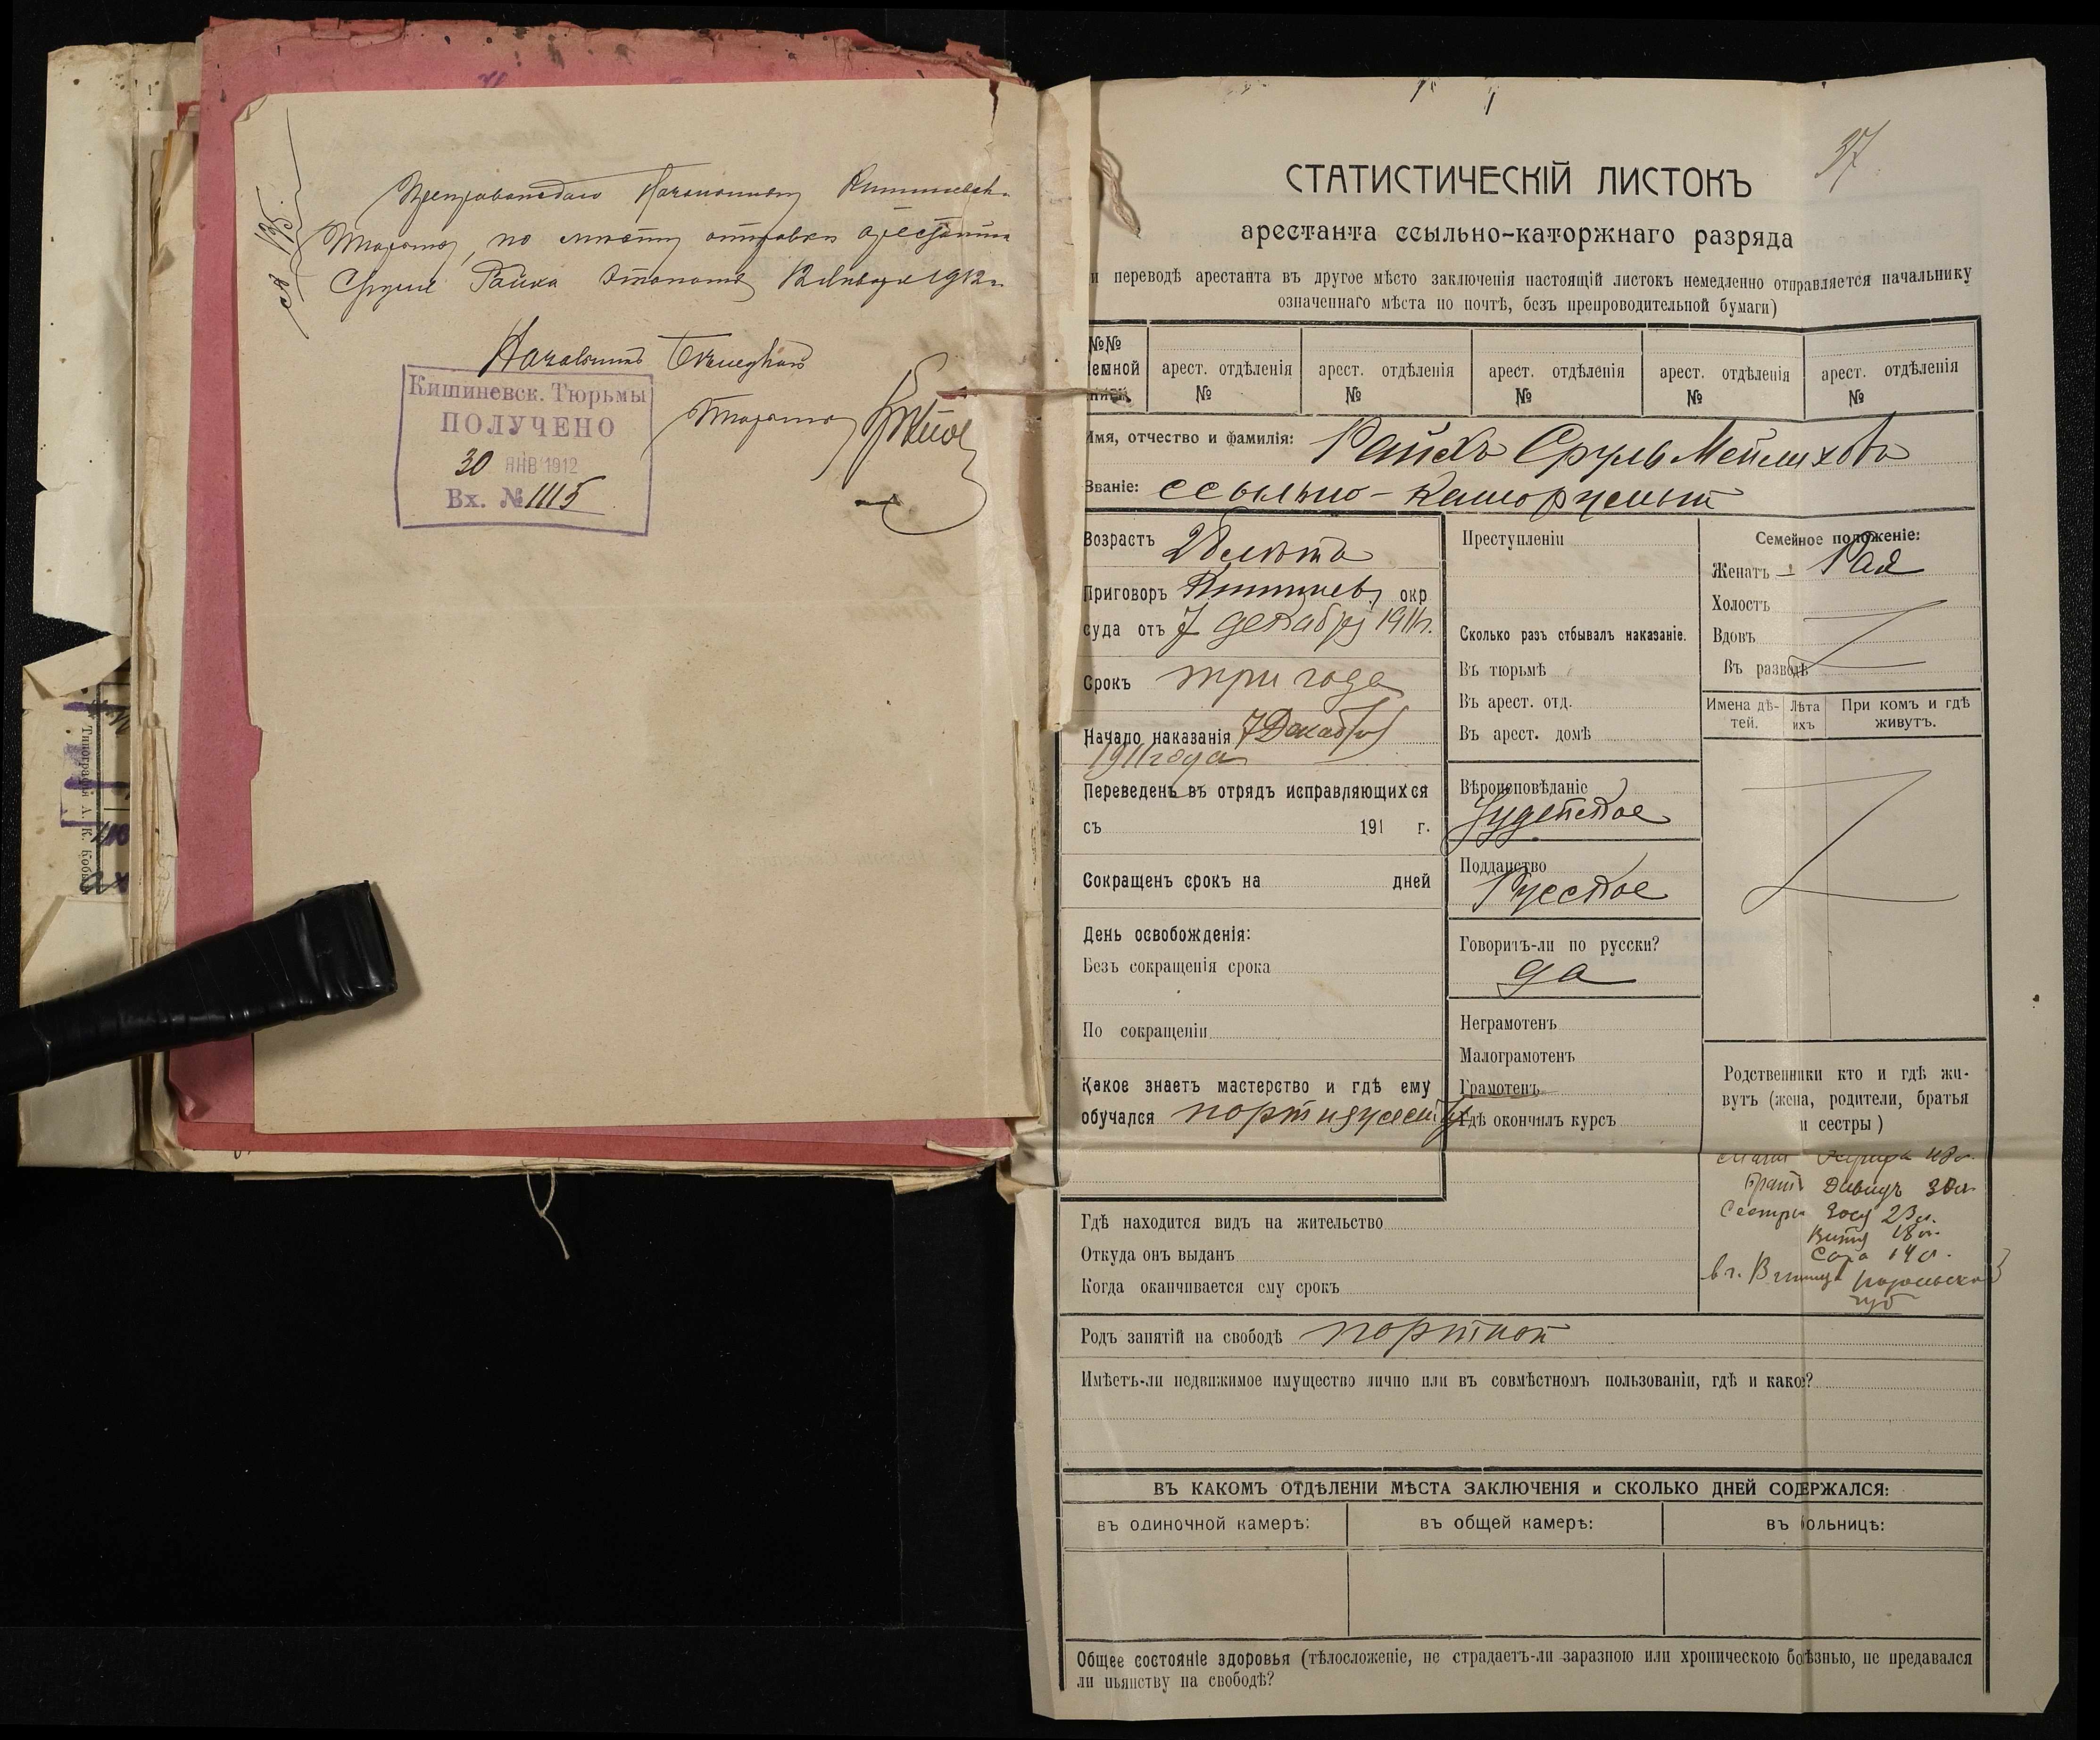 Препровождаю Начальнику Кишиневск.
Тюрьмы, по месту отправки арестанта
Сруля Райха этапомъ Января 1912 г.
Начальникъ
Тюрьмы
Кишиневск. Тюрьмы
ПОЛУЧЕНО
30 ЯНВ 1912
Вх. № 1115
Типографія А. К.
37
СТАТИСТИЧЕСКІЙ ЛИСТОКЪ
арестанта ссыльно-каторжнаго разряда
и переводѣ арестанта въ другое мѣсто заключенія настоящій листокъ немедленно отправляется начальнику
означеннаго мѣста по почтѣ, безъ препроводительной бумаги)
№№
емной
арест. отдѣленія №
арест. отдѣленія №
арест. отдѣленія №
арест. отдѣленія №
арест. отдѣленія №
Имя, отчество и фамилія: Райхъ Сруль Мейлиховъ
Званіе: ссыльно-каторжный
Возрастъ 28 лѣтъ
Приговоръ Кишинев, окр
суда отъ 7 декабря 1911 г.
Срокъ три года
Начало наказанія 7 Декабря
1911 года
Переведенъ въ отрядъ исправляющихся
съ 191 г.
Сокращенъ срокъ на дней
День освобожденія:
Безъ сокращенія срока
По сокращеніи
Какое знаетъ мастерство и гдѣ ему
обучался портняжеству
Преступленіи
Сколько разъ отбывалъ наказаніе.
Въ тюрьмѣ
Въ арест. отд.
Въ арест. домѣ
Вѣроисповѣданіе
Іудейское
Подданство
Русское
Говоритъ-ли по русски?
да
Неграмотенъ
Малограмотенъ
Грамотенъ
Гдѣ окончилъ курсъ
Семейное положеніе:
Женатъ — Рая
Холостъ
Вдовъ
Въ разводѣ
Имена дѣтей.
Лѣта ихъ
При комъ и гдѣ живутъ.
Родственники кто и гдѣ жи-
вутъ (жена, родители, братья
и сестры)
Мать 48 л.
Братъ Давидъ 30 л.
Сестры 23 л.
18 л.
Сара 14 л.
в г. Винница Подольской
губ
Гдѣ находится видъ на жительство
Откуда онъ выданъ
Когда оканчивается ему срокъ
Родъ занятій на свободѣ портной
Имѣетъ-ли недвижимое имущество лично или въ совмѣстномъ пользованіи, гдѣ и какое?
ВЪ КАКОМЪ ОТДѢЛЕНІИ МѢСТА ЗАКЛЮЧЕНІЯ и СКОЛЬКО ДНЕЙ СОДЕРЖАЛСЯ:
въ одиночной камерѣ:
въ общей камерѣ:
въ больницѣ:
Общее состояніе здоровья (тѣлосложеніе, не страдаетъ-ли заразною или хроническою болѣзнью, не предавался
ли пьянству на свободѣ?